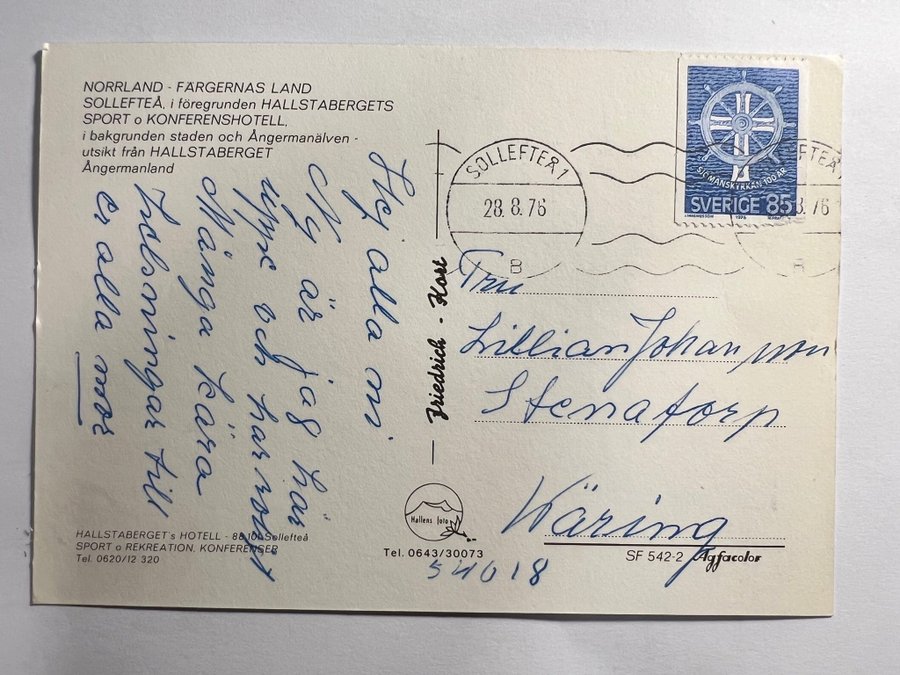 NORRLAND - FÄRGERNAS LAND
SOLLEFTEÅ, i föregrunden HALLSTABERGETS
SPORT o KONFERENSHOTELL,
i bakgrunden staden och Ångermanälven -
utsikt från HALLSTABERGET
Ångermanland
Hej alla ni
Ny är jag här
uppe och har
Många kära
hälsningar till
er alla mor
HALLSTABERGET's HOTELL - 88101 Sollefteå
SPORT o REKREATION, KONFERENSER
Tel. 0620/12 320
Friedrich - Kort
Hallens foto
Tel. 0643/30073
SOLLEFTEÅ 1
28.8.76
B
SJÖMANSKYRKAN 100 ÅR
SVERIGE 85
1976
Fru
Lillian Johansson
Stenatorp
Väring
54018
SF 542-2 Agfacolor